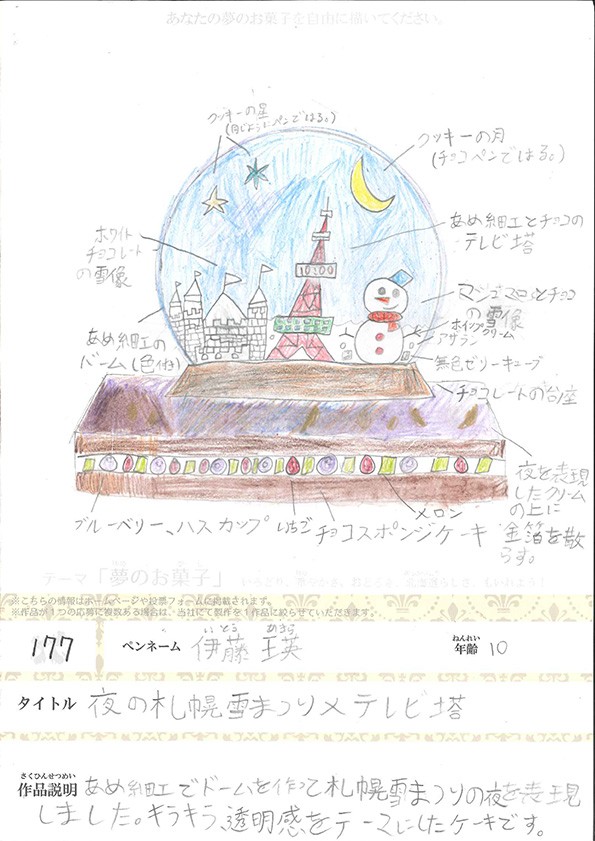 あなたの夢のお菓子を自由に描いてください。
クッキーの星
クッキーの月
(チョコペンではる。)
あめ細工とチョコの
テレビ塔
ホワイト
チョコレート
の雪像
10:00
マシュマロとチョコ
の雪像
ホイップクリーム
アザラン
あめ細工の
ドーム(色付)
無色ゼリーキューブ
チョコレートの台座
夜を表現
したクリーム
の上に
金箔を散
らす。
ブルーベリー、ハスカップ いちご チョコスポンジケーキ メロン
テーマ「夢のお菓子」
※こちらの情報はホームページや投票フォームに掲載されます。
※作品が1つの応募に複数ある場合は、当社にて製作を1作品に絞らせていただきます。
177
ペンネーム 伊藤
いとう あきら
ねんれい
年齢 10
タイトル 夜の札幌雪まつり×テレビ塔
さくひんせつめい
作品説明 あめ細工でドームを作って札幌雪まつりの夜を表現
しました。キラキラ、透明感をテーマにしたケーキです。